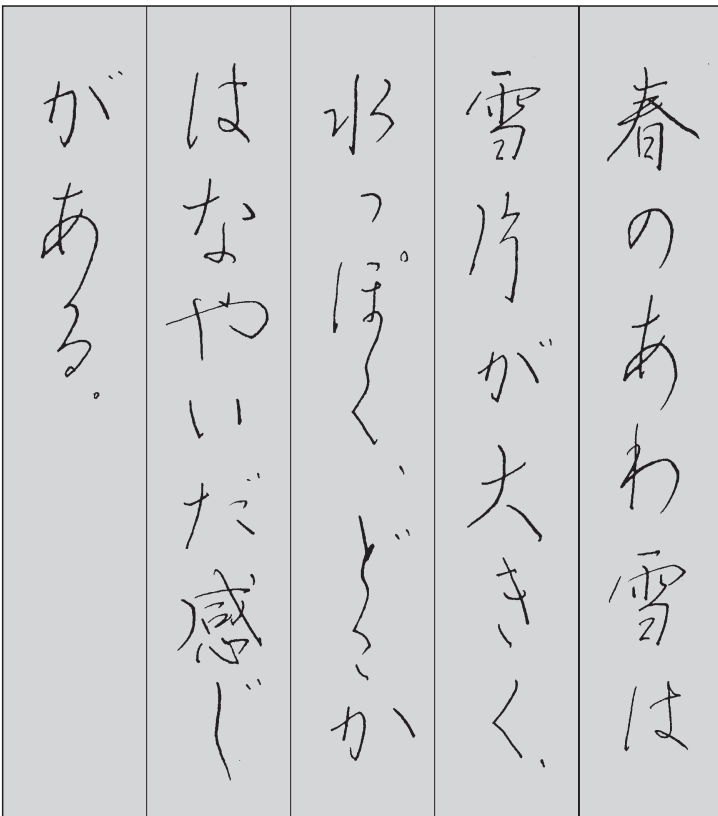 春のあわ雪は
雪片が大きく、
水っぽく、どこか
はなやいだ感じ
がある。